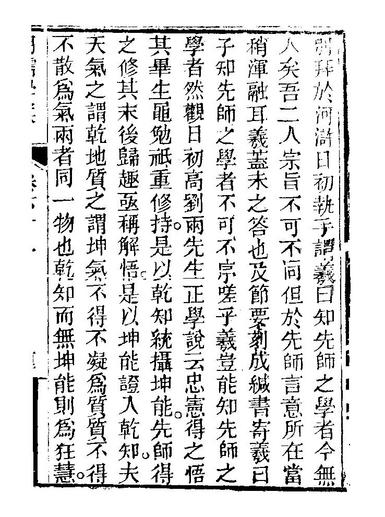 別拜於河滸日初執手謂羲曰知先師之學者今無
人矣吾二人宗旨不可不同但於先師言意所在當
稍渾融耳羲蓋未之答也及節要刻成緘書寄羲曰
子知先師之學者不可不序嗟乎羲豈能知先師之
學者然觀日初高劉兩先生正學說云忠憲得之悟
其畢生黽勉祗重修持是以乾知統攝坤能先師得
之修其末後歸趣亟稱解悟是以坤能證入乾知夫
天氣之謂乾地質之謂坤氣不得不凝爲質質不得
不散爲氣兩者同一物也乾知而無坤能則爲狂慧